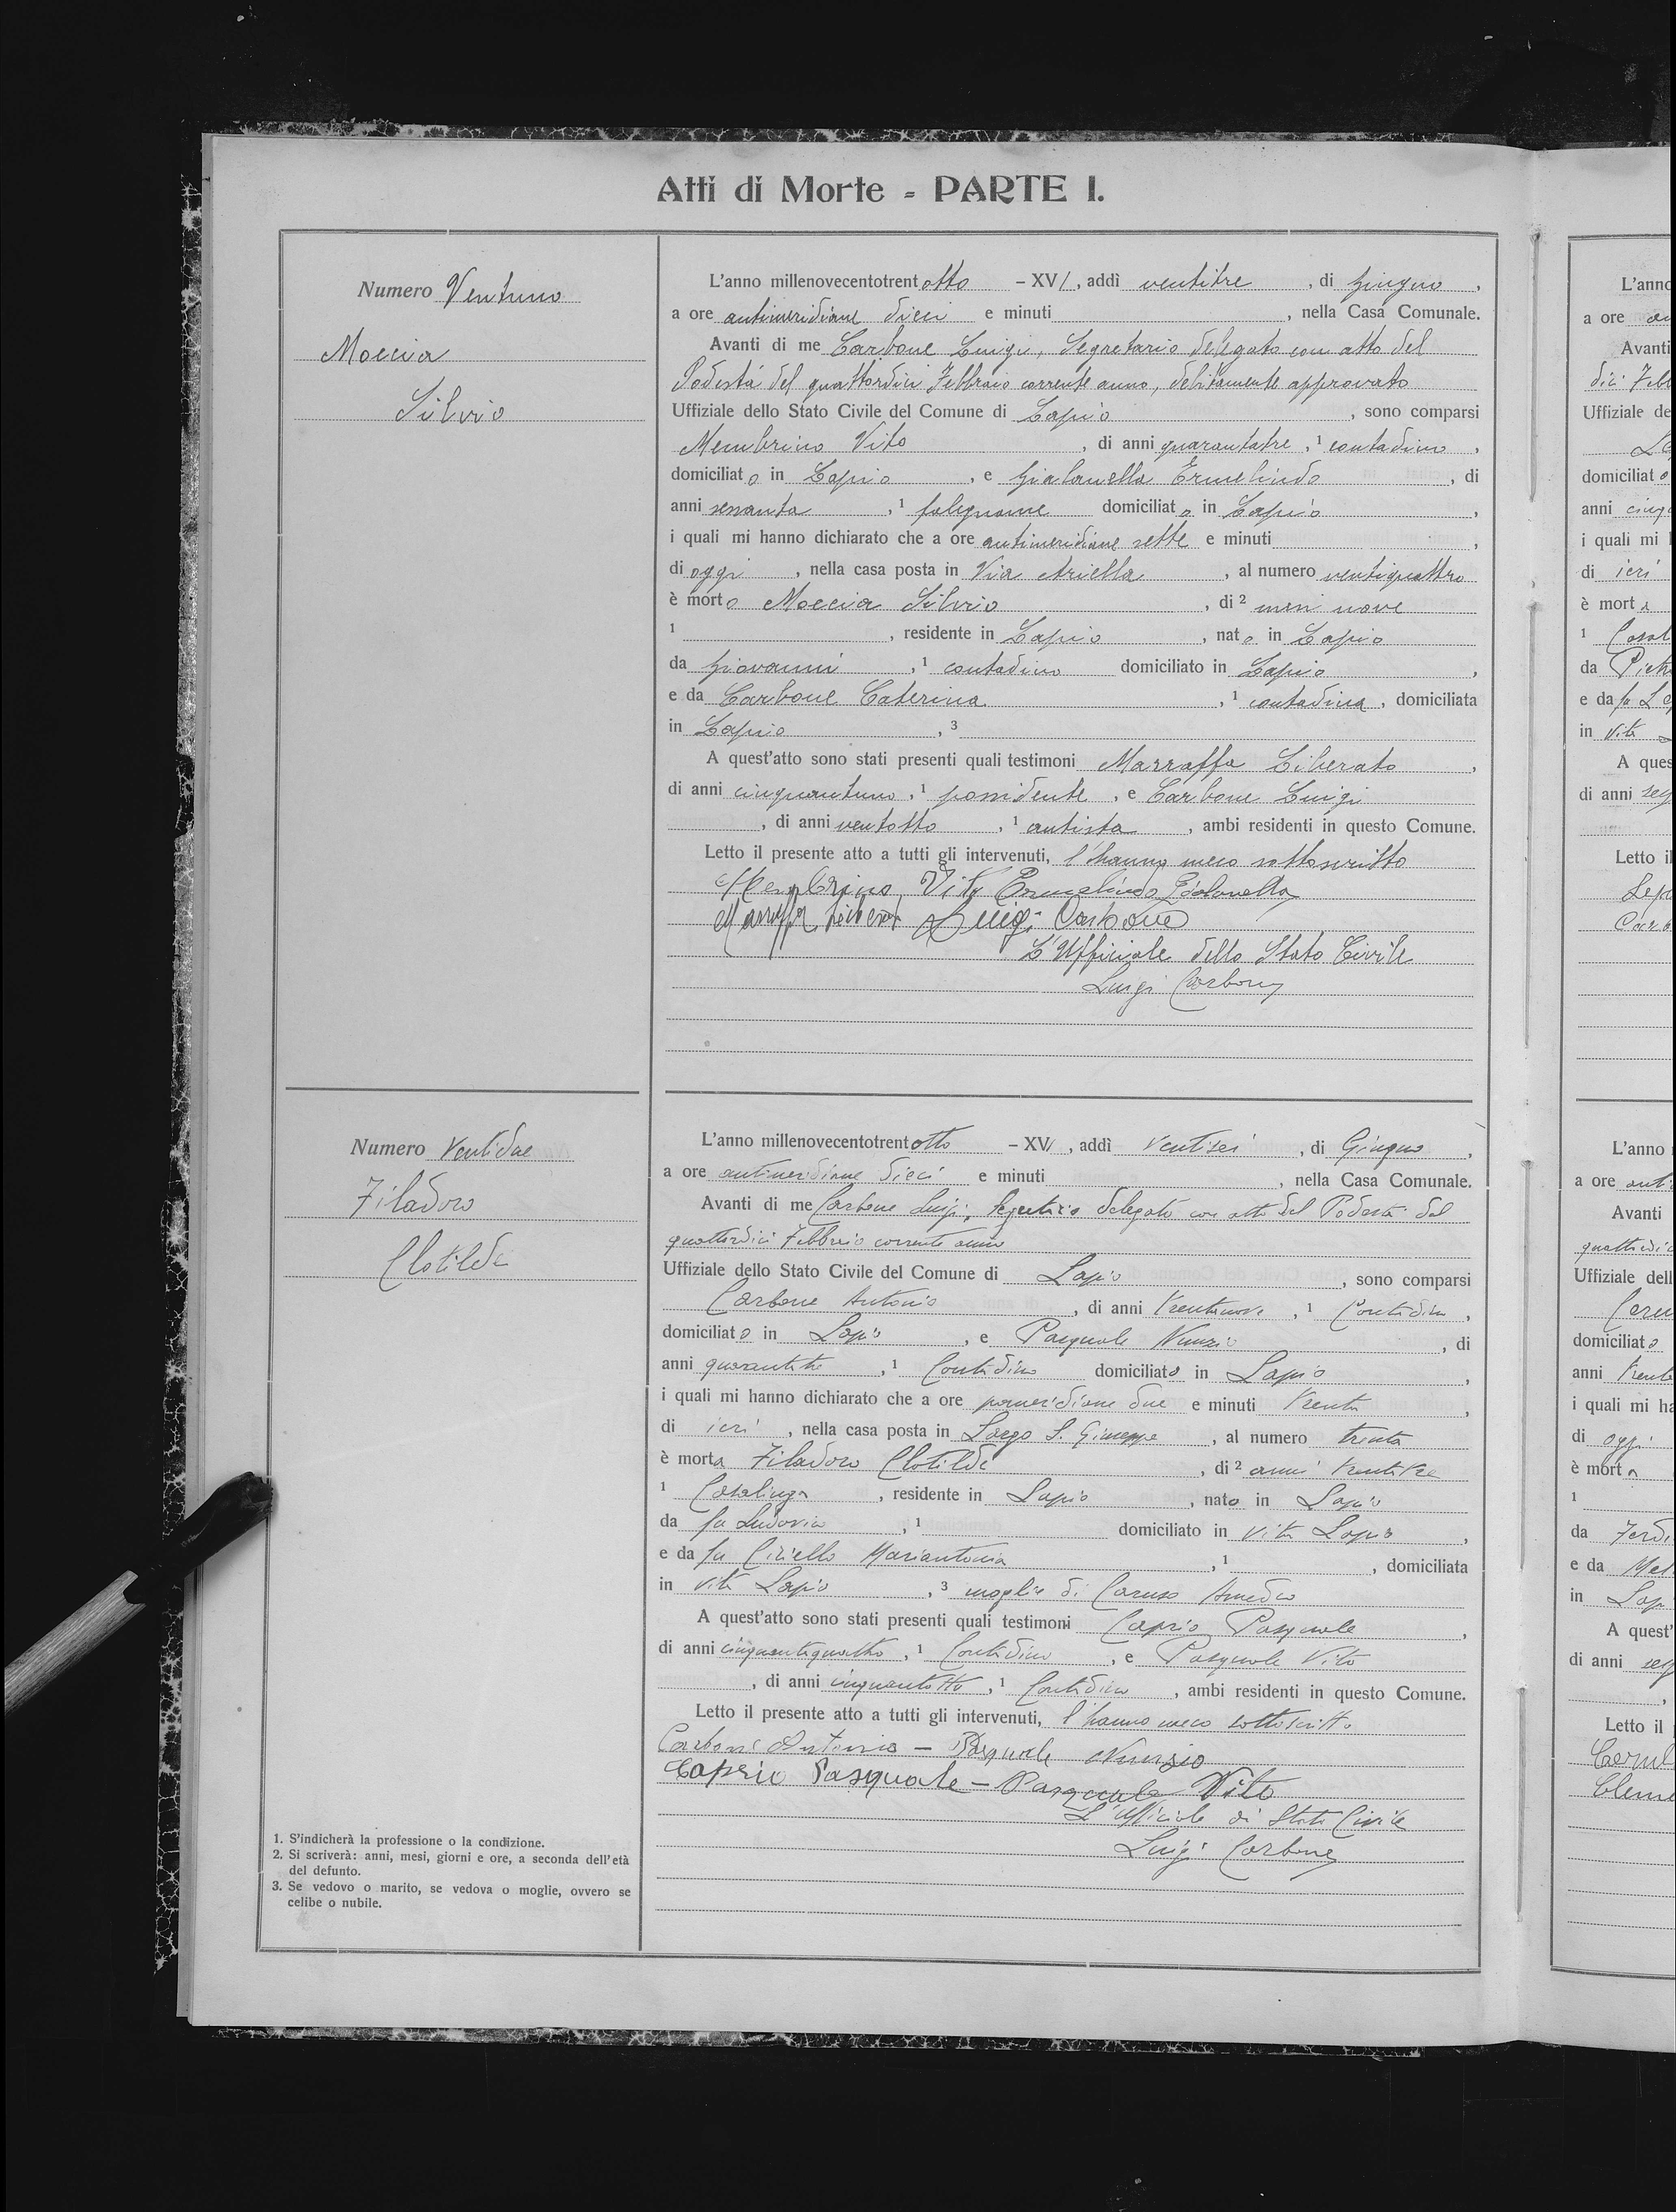 Atti di Morte - PARTE I.
Numero Ventuno
Moccia
Silvio
L'anno millenovecentotrentotto - XVI, addì ventitre, di Giugno,
a ore antimeridiane dieci e minuti , nella Casa Comunale.
Avanti di me Carbone Luigi, Segretario delegato con atto del
Podestà del quattordici Febbraio corrente anno, debitamente approvato
Uffiziale dello Stato Civile del Comune di Lapio, sono comparsi
Membrino Vito, di anni quarantatre, 1 contadino,
domiciliato in Lapio, e Gialanella Ermelindo, di
anni sessanta, 1 falegname domiciliato in Lapio,
i quali mi hanno dichiarato che a ore antimeridiane sette e minuti ,
di oggi, nella casa posta in Via Ariella, al numero ventiquattro
è morto Moccia Silvio, di 2 mesi nove
1 , residente in Lapio, nato in Lapio
da Giovanni, 1 contadino domiciliato in Lapio,
e da Carbone Caterina, 1 contadina, domiciliata
in Lapio, 3
A quest'atto sono stati presenti quali testimoni Marraffa Liberato,
di anni cinquantuno, 1 possidente, e Carbone Luigi
, di anni ventotto, 1 autista, ambi residenti in questo Comune.
Letto il presente atto a tutti gli intervenuti, l'hanno meco sottoscritto
Membrino Vito Ermelindo Gialanella
Marraffa Liberat Luigi Carbone
L'Ufficiale dello Stato Civile
Luigi Carbone
Numero Ventidue
Filadoro
Clotilde
L'anno millenovecentotrentotto - XVI, addì Ventisei, di Giugno,
a ore antimeridiane dieci e minuti , nella Casa Comunale.
Avanti di me Carbone Luigi, Segretario delegato con atto del Podestà del
quattordici Febbraio corrente anno
Uffiziale dello Stato Civile del Comune di Lapio, sono comparsi
Carbone Antonio, di anni trentanove, 1 Contadino,
domiciliato in Lapio, e Pasquale Nunzio, di
anni quarantatre, 1 Contadino domiciliato in Lapio,
i quali mi hanno dichiarato che a ore pomeridiane due e minuti trenta,
di ieri, nella casa posta in Largo S. Giuseppe, al numero trenta
è morta Filadoro Clotilde, di 2 anni trentatre
1 Casalinga, residente in Lapio, nata in Lapio
da fu Ludovico, 1 domiciliato in vita Lapio,
e da fu Ciriello Mariantonia, 1 , domiciliata
in vita Lapio, 3 moglie di Caruso Amedeo
A quest'atto sono stati presenti quali testimoni Caprio Pasquale,
di anni cinquantaquattro, 1 Contadino, e Pasquale Vito
, di anni cinquantotto, 1 Contadino, ambi residenti in questo Comune.
Letto il presente atto a tutti gli intervenuti, l'hanno meco sottoscritto
Carbone Antonio - Pasquale Nunzio
Caprio Pasquale - Pasquale Vito
L'ufficiale di Stato Civile
Luigi Carbone
1. S'indicherà la professione o la condizione.
2. Si scriverà: anni, mesi, giorni e ore, a seconda dell'età
del defunto.
3. Se vedovo o marito, se vedova o moglie, ovvero se
celibe o nubile.